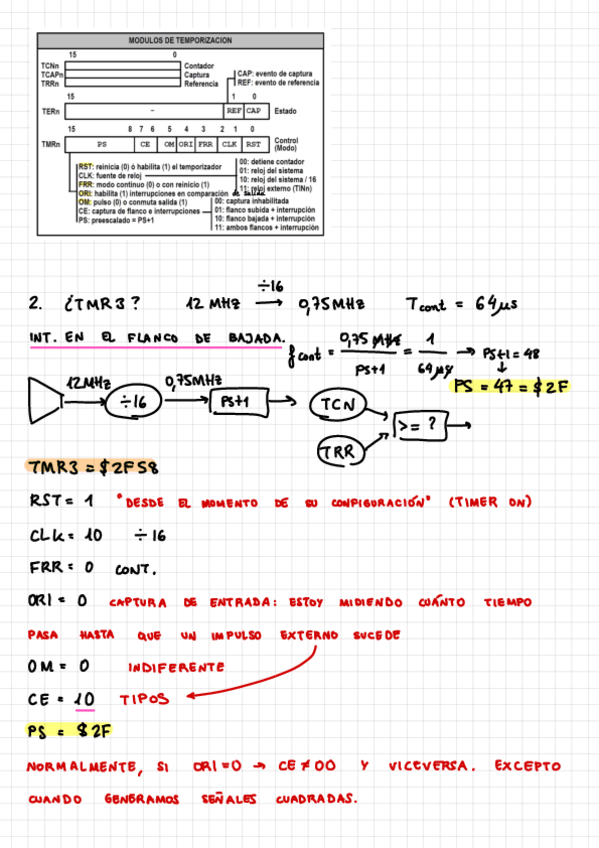 MODULOS DE TEMPORIZACION
15 0
TCNn Contador
TCAPn Captura
TRRn Referencia
CAP: evento de captura
REF: evento de referencia
15 1 0
TERn - REF CAP Estado
15 8 7 6 5 4 3 2 1 0
TMRn PS CE OM ORI FRR CLK RST Control
(Modo)
RST: reinicia (0) ó habilita (1) el temporizador
CLK: fuente de reloj
FRR: modo continuo (0) o con reinicio (1)
ORI: habilita (1) interrupciones en comparación de salida
OM: pulso (0) o conmuta salida (1)
CE: captura de flanco e interrupciones
PS: preescalado = PS+1
00: detiene contador
01: reloj del sistema
10: reloj del sistema / 16
11: reloj externo (TINn)
00: captura inhabilitada
01: flanco subida + interrupción
10: flanco bajada + interrupción
11: ambos flancos + interrupción
2. ¿TMR3? 12 MHz ÷16 → 0,75MHz Tcont = 64μs
INT. EN EL FLANCO DE BAJADA.
fcont = 0,75 MHz / PS+1 = 1 / 64μs → PS+1 = 48
↓
PS = 47 = $2F
12MHz ÷16 0,75MHz PS+1 TCN
TRR
>= ?
TMR3 = $2F58
RST = 1 "DESDE EL MOMENTO DE SU CONFIGURACIÓN" (TIMER ON)
CLK = 10 ÷16
FRR = 0 CONT.
ORI = 0 CAPTURA DE ENTRADA: ESTOY MIDIENDO CUÁNTO TIEMPO
PASA HASTA QUE UN IMPULSO EXTERNO SUCEDE
OM = 0 INDIFERENTE
CE = 10 TIPOS
PS = $2F
NORMALMENTE, SI ORI=0 → CE≠00 Y VICEVERSA. EXCEPTO
CUANDO GENERAMOS SEÑALES CUADRADAS.